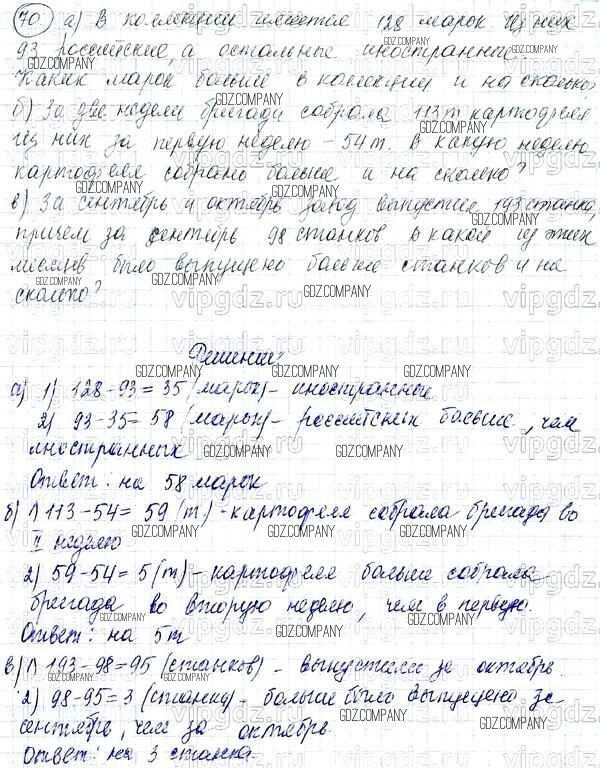 70 а) В коллекции имеется 128 марок. Из них
93 российские, а остальные иностранные.
Каких марок больше в коллекции и на сколько?
б) За две недели бригада собрала 113 т картофеля
из них за первую неделю - 54 т. В какую неделю
картофеля собрано больше и на сколько?
в) За сентябрь и октябрь завод выпустил 193 станка,
причем за сентябрь 98 станков. В какой из этих
месяцев было выпущено больше станков и на
сколько?
Решение:
а) 1) 128-93=35 (марок) - иностранной
2) 93-35=58 (марок) - российских больше, чем
иностранных
Ответ: на 58 марок
б) 1) 113-54=59 (т) - картофеля собрала бригада во
II неделю
2) 59-54=5 (т) - картофеля больше собрала
бригада во вторую неделю, чем в первую.
Ответ: на 5 т
в) 1) 193-98=95 (станков) - выпустили за октябрь.
2) 98-95=3 (станка) - больше было выпущено за
сентябрь, чем за октябрь.
Ответ: на 3 станка.
GDZ.COMPANY
vipgdz.ru